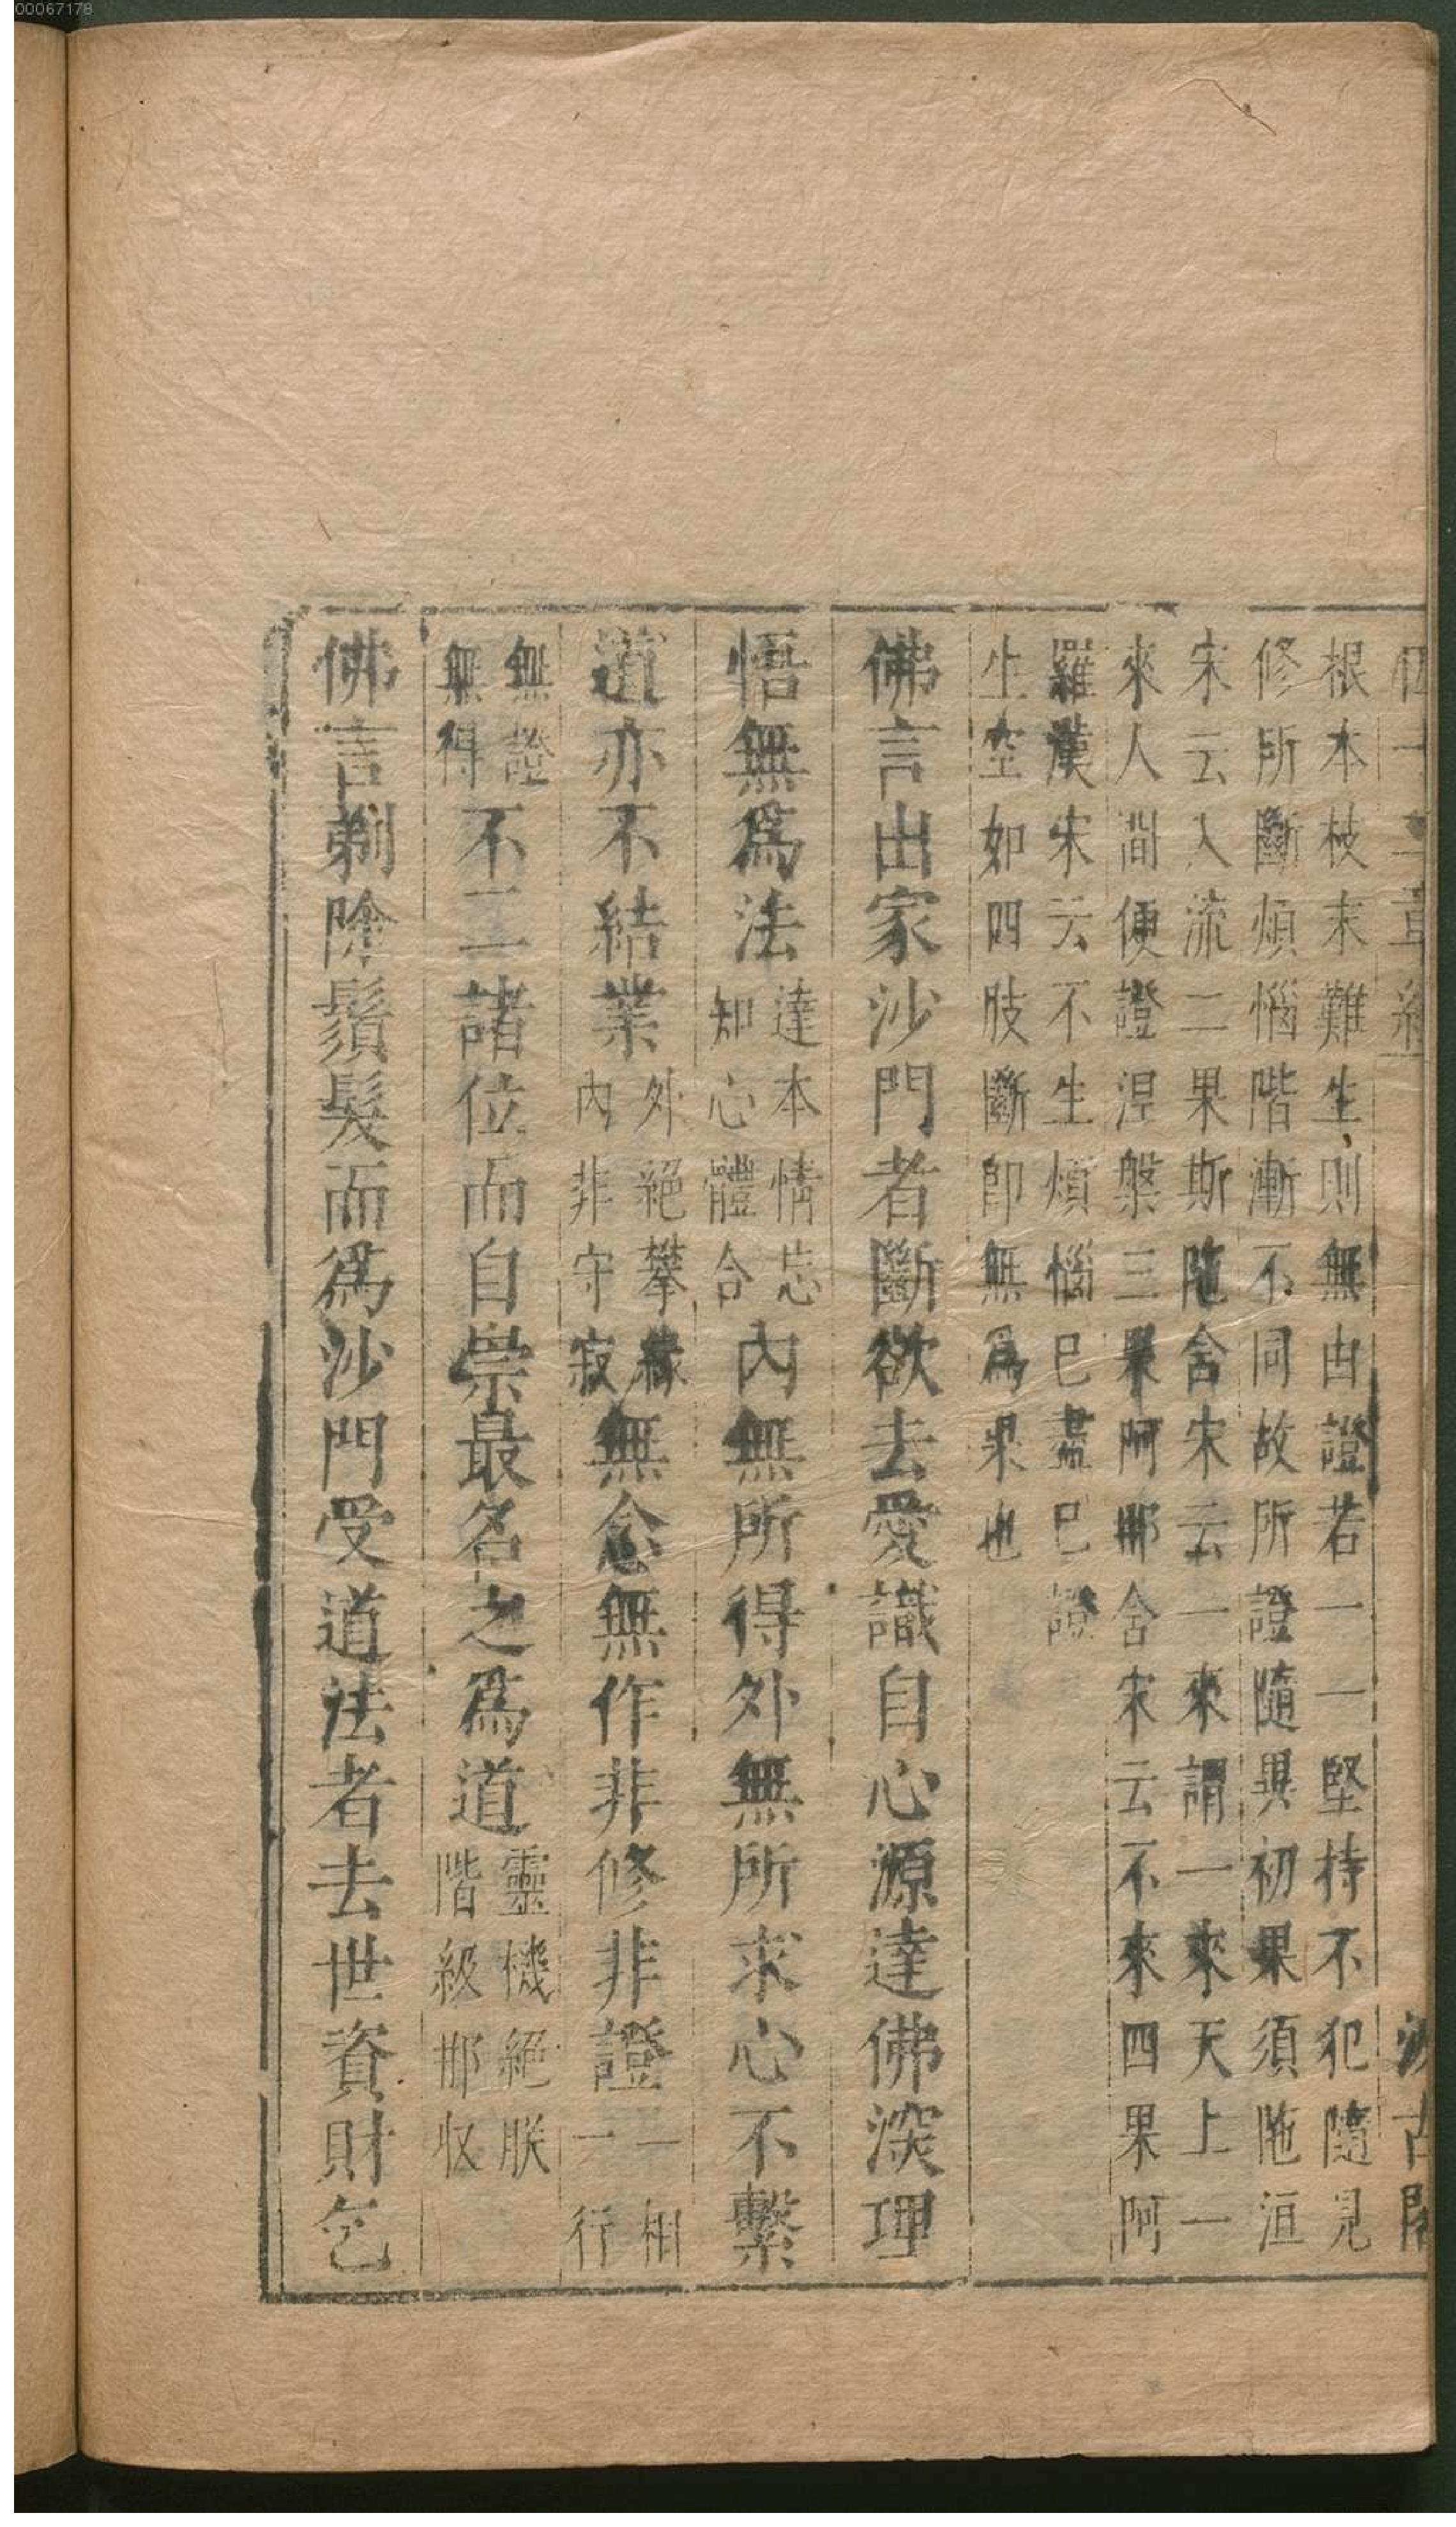 00067178
四十二章經 汲古閣
根本枝末難生則無由證若一一堅持不犯隨見
修所斷煩惱階漸不同故所證隨異初果須陁洹
宋云入流二果斯陁含宋云一來謂一來天上一
來人間便證涅槃三果阿那含宋云不來四果阿
羅漢宋云不生煩惱已盡已證
生空如四肢斷卽無爲果也
佛言出家沙門者斷欲去愛識自心源達佛深理
悟無爲法達本情忘知心體合內無所得外無所求心不繫
道亦不結業外絕攀緣內非守寂無念無作非修非證一相一行
無證無得不二諸位而自崇最名之爲道靈機絕朕階級那收
佛言剃除鬚髮而爲沙門受道法者去世資財乞